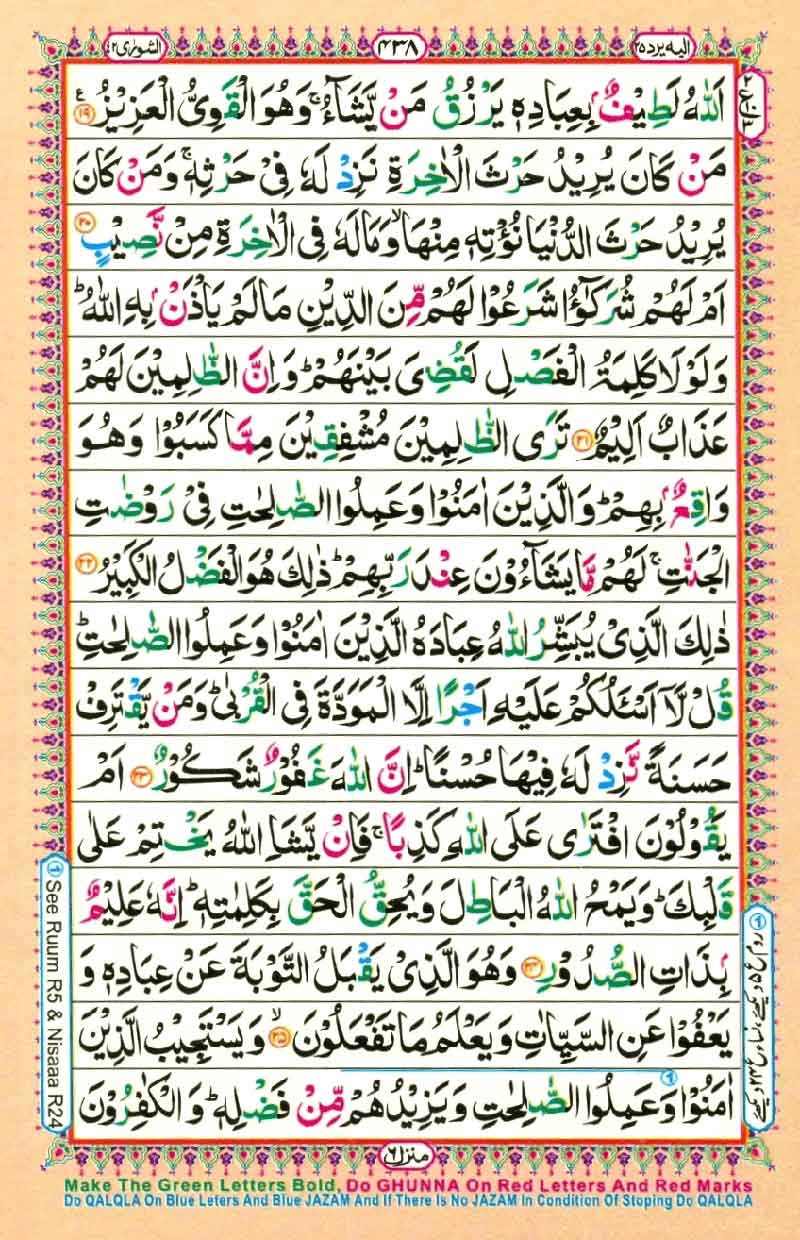 اليه يرده ٢٥
٤٣٨
الشورٰى ٤٢
اَللّٰهُ لَطِيْفٌۢ بِعِبَادِهٖ يَرْزُقُ مَنْ يَّشَآءُ ۚ وَهُوَ الْقَوِىُّ الْعَزِيْزُ ۧ ١٩
مَنْ كَانَ يُرِيْدُ حَرْثَ الْاٰخِرَةِ نَزِدْ لَهٗ فِىْ حَرْثِهٖ ۚ وَمَنْ كَانَ
يُرِيْدُ حَرْثَ الدُّنْيَا نُؤْتِهٖ مِنْهَا ۙ وَمَا لَهٗ فِى الْاٰخِرَةِ مِنْ نَّصِيْبٍ ٢٠
اَمْ لَهُمْ شُرَكٰٓؤُا شَرَعُوْا لَهُمْ مِّنَ الدِّيْنِ مَا لَمْ يَاْذَنْۢ بِهِ اللّٰهُ ؕ
وَلَوْلَا كَلِمَةُ الْفَصْلِ لَقُضِىَ بَيْنَهُمْ ؕ وَاِنَّ الظّٰلِمِيْنَ لَهُمْ
عَذَابٌ اَلِيْمٌ ٢١ تَرَى الظّٰلِمِيْنَ مُشْفِقِيْنَ مِمَّا كَسَبُوْا وَهُوَ
وَاقِعٌۢ بِهِمْ ؕ وَالَّذِيْنَ اٰمَنُوْا وَعَمِلُوا الصّٰلِحٰتِ فِىْ رَوْضٰتِ
الْجَنّٰتِ ۚ لَهُمْ مَّا يَشَآءُوْنَ عِنْدَ رَبِّهِمْ ؕ ذٰلِكَ هُوَ الْفَضْلُ الْكَبِيْرُ ٢٢
ذٰلِكَ الَّذِىْ يُبَشِّرُ اللّٰهُ عِبَادَهُ الَّذِيْنَ اٰمَنُوْا وَعَمِلُوا الصّٰلِحٰتِ ؕ
قُلْ لَّاۤ اَسْئَلُكُمْ عَلَيْهِ اَجْرًا اِلَّا الْمَوَدَّةَ فِى الْقُرْبٰى ؕ وَمَنْ يَّقْتَرِفْ
حَسَنَةً نَّزِدْ لَهٗ فِيْهَا حُسْنًا ؕ اِنَّ اللّٰهَ غَفُوْرٌ شَكُوْرٌ ٢٣ اَمْ
يَقُوْلُوْنَ افْتَرٰى عَلَى اللّٰهِ كَذِبًا ۚ فَاِنْ يَّشَاِ اللّٰهُ يَخْتِمْ عَلٰى
قَلْبِكَ ؕ وَيَمْحُ اللّٰهُ الْبَاطِلَ وَيُحِقُّ الْحَقَّ بِكَلِمٰتِهٖ ؕ اِنَّهٗ عَلِيْمٌۢ
بِذَاتِ الصُّدُوْرِ ٢٤ وَهُوَ الَّذِىْ يَقْبَلُ التَّوْبَةَ عَنْ عِبَادِهٖ وَ
يَعْفُوْا عَنِ السَّيِّاٰتِ وَيَعْلَمُ مَا تَفْعَلُوْنَ ۙ ٢٥ وَيَسْتَجِيْبُ الَّذِيْنَ
اٰمَنُوْا وَعَمِلُوا الصّٰلِحٰتِ وَيَزِيْدُهُمْ مِّنْ فَضْلِهٖ ؕ وَالْكٰفِرُوْنَ
① See Ruum R5 & Nisaaa R24
منزل ٦
Make The Green Letters Bold, Do GHUNNA On Red Letters And Red Marks
Do QALQLA On Blue Leters And Blue JAZAM And If There Is No JAZAM In Condition Of Stoping Do QALQLA